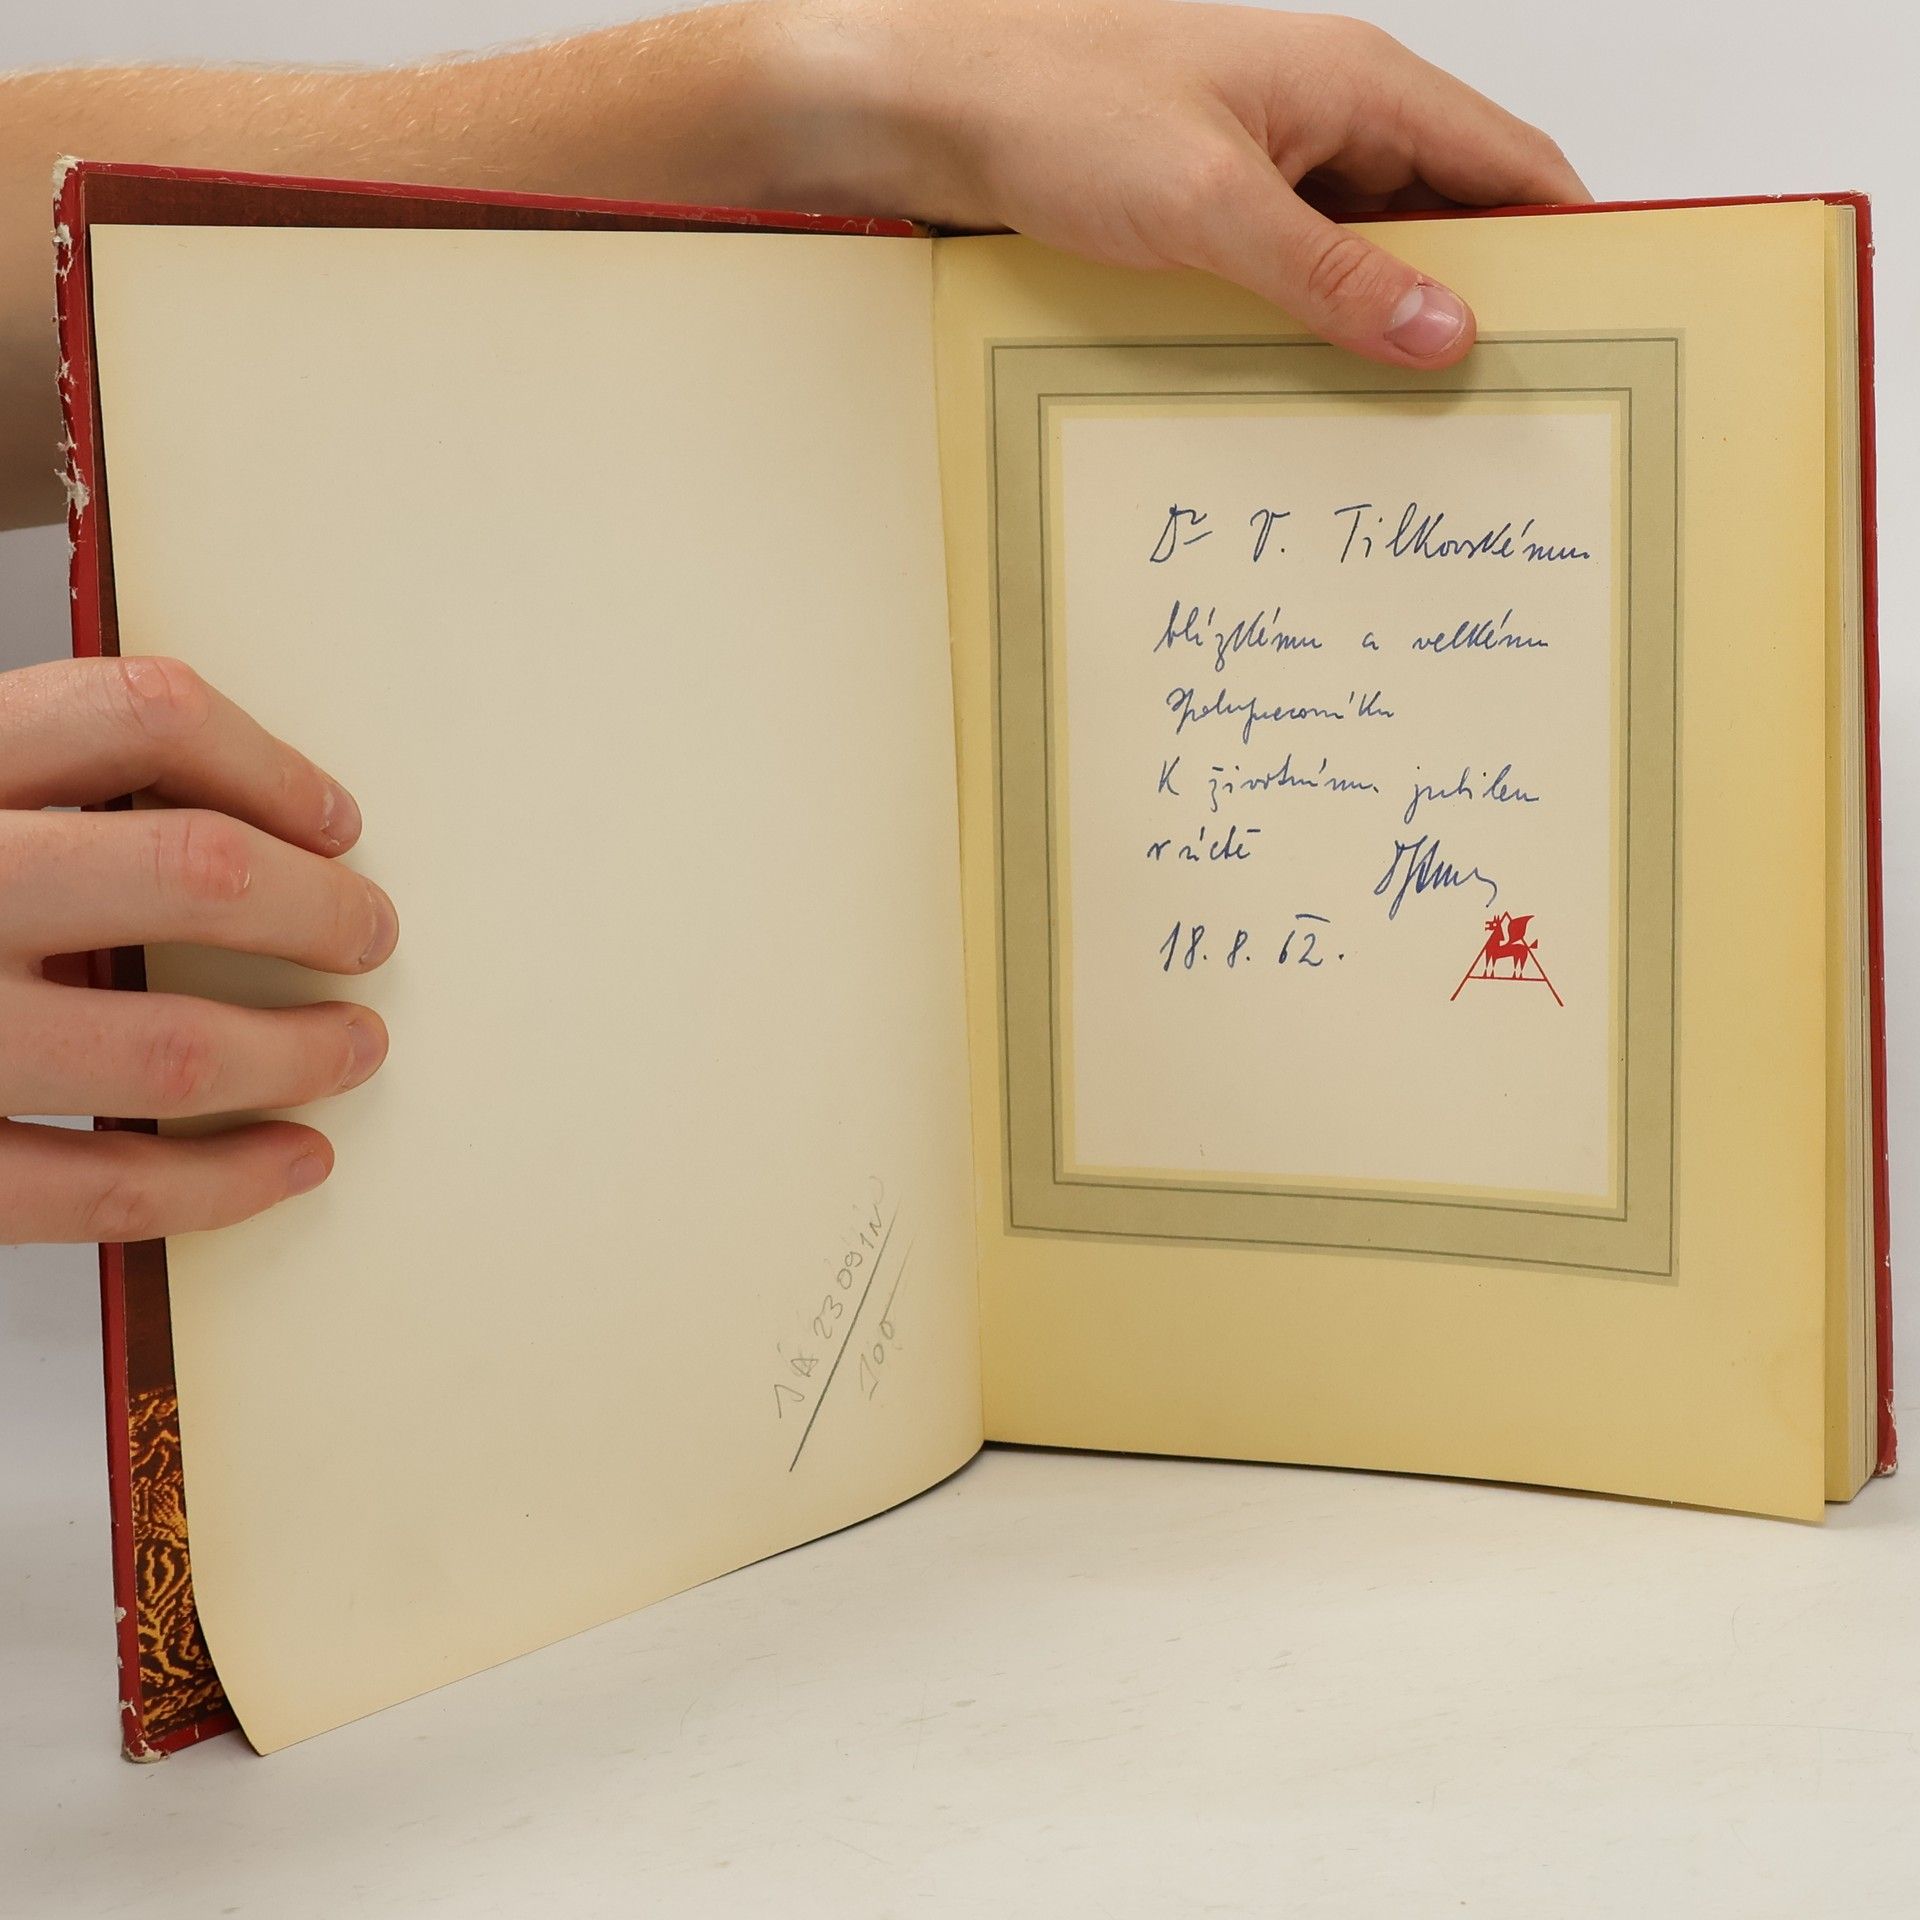 Dr V. Tilkovskému
blízkému a velkému
spolupracovníku
K životnímu jubileu
v úctě
18. 8. 62.
23091N
100